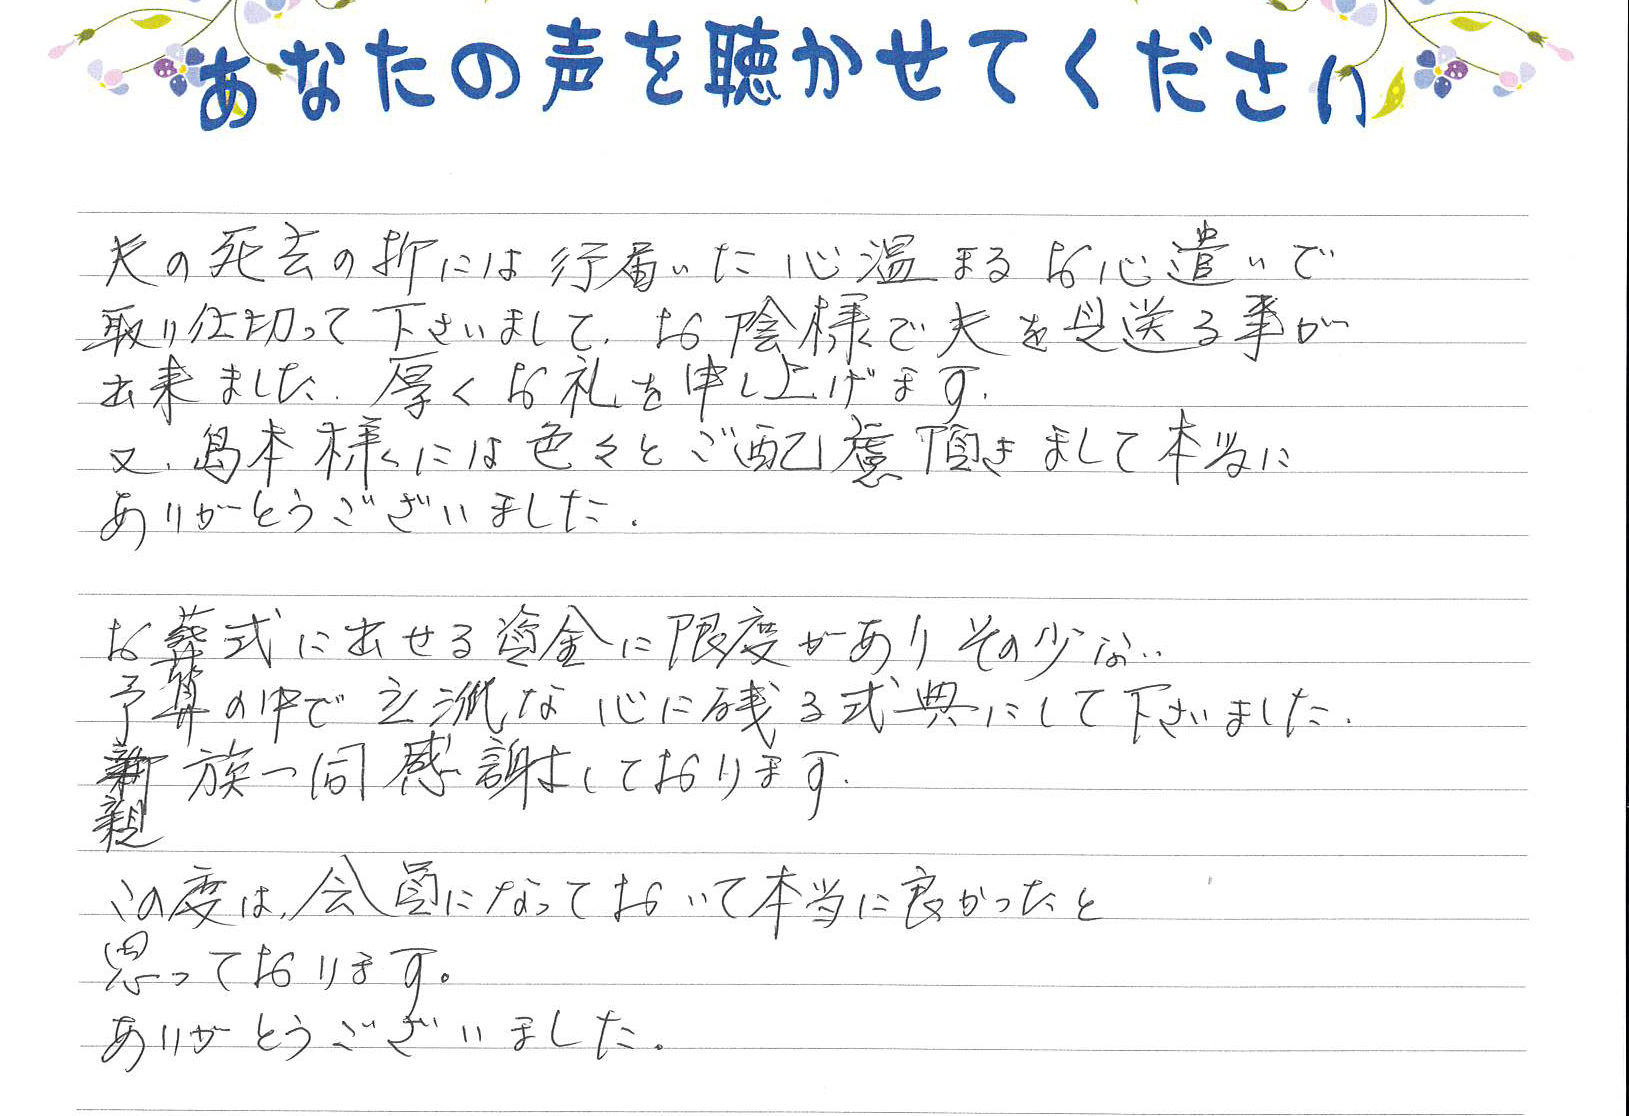 あなたの声を聴かせてください
夫の死去の折には行届いた心温まるお心遣いで
取り仕切って下さいまして、お陰様で夫を見送る事が
出来ました。厚くお礼を申し上げます。
又、島本様には色々とご配慮頂きまして本当に
ありがとうございました。
お葬式に出せる資金に限度がありその少ない
予算の中で立派な心に残る式典にして下さいました。
族一同感謝しております。
親
この度は、会員になっておいて本当に良かったと
思っております。
ありがとうございました。